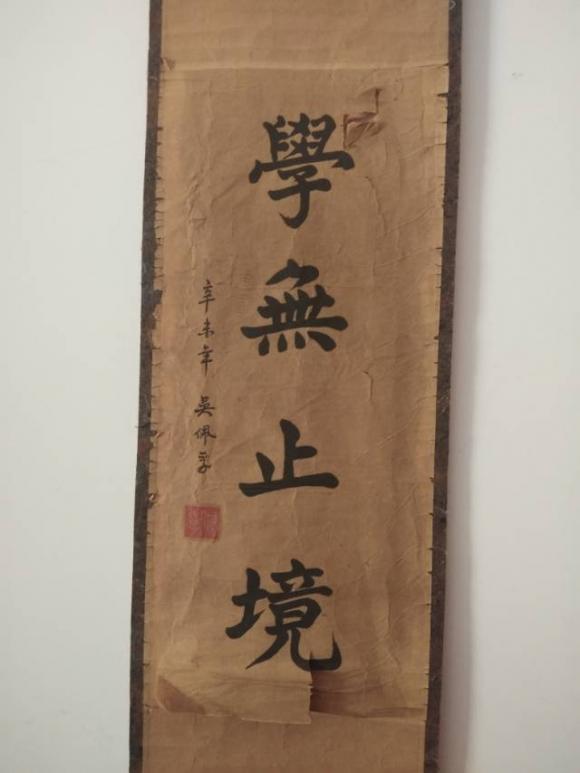 學無止境
辛未年 吳佩